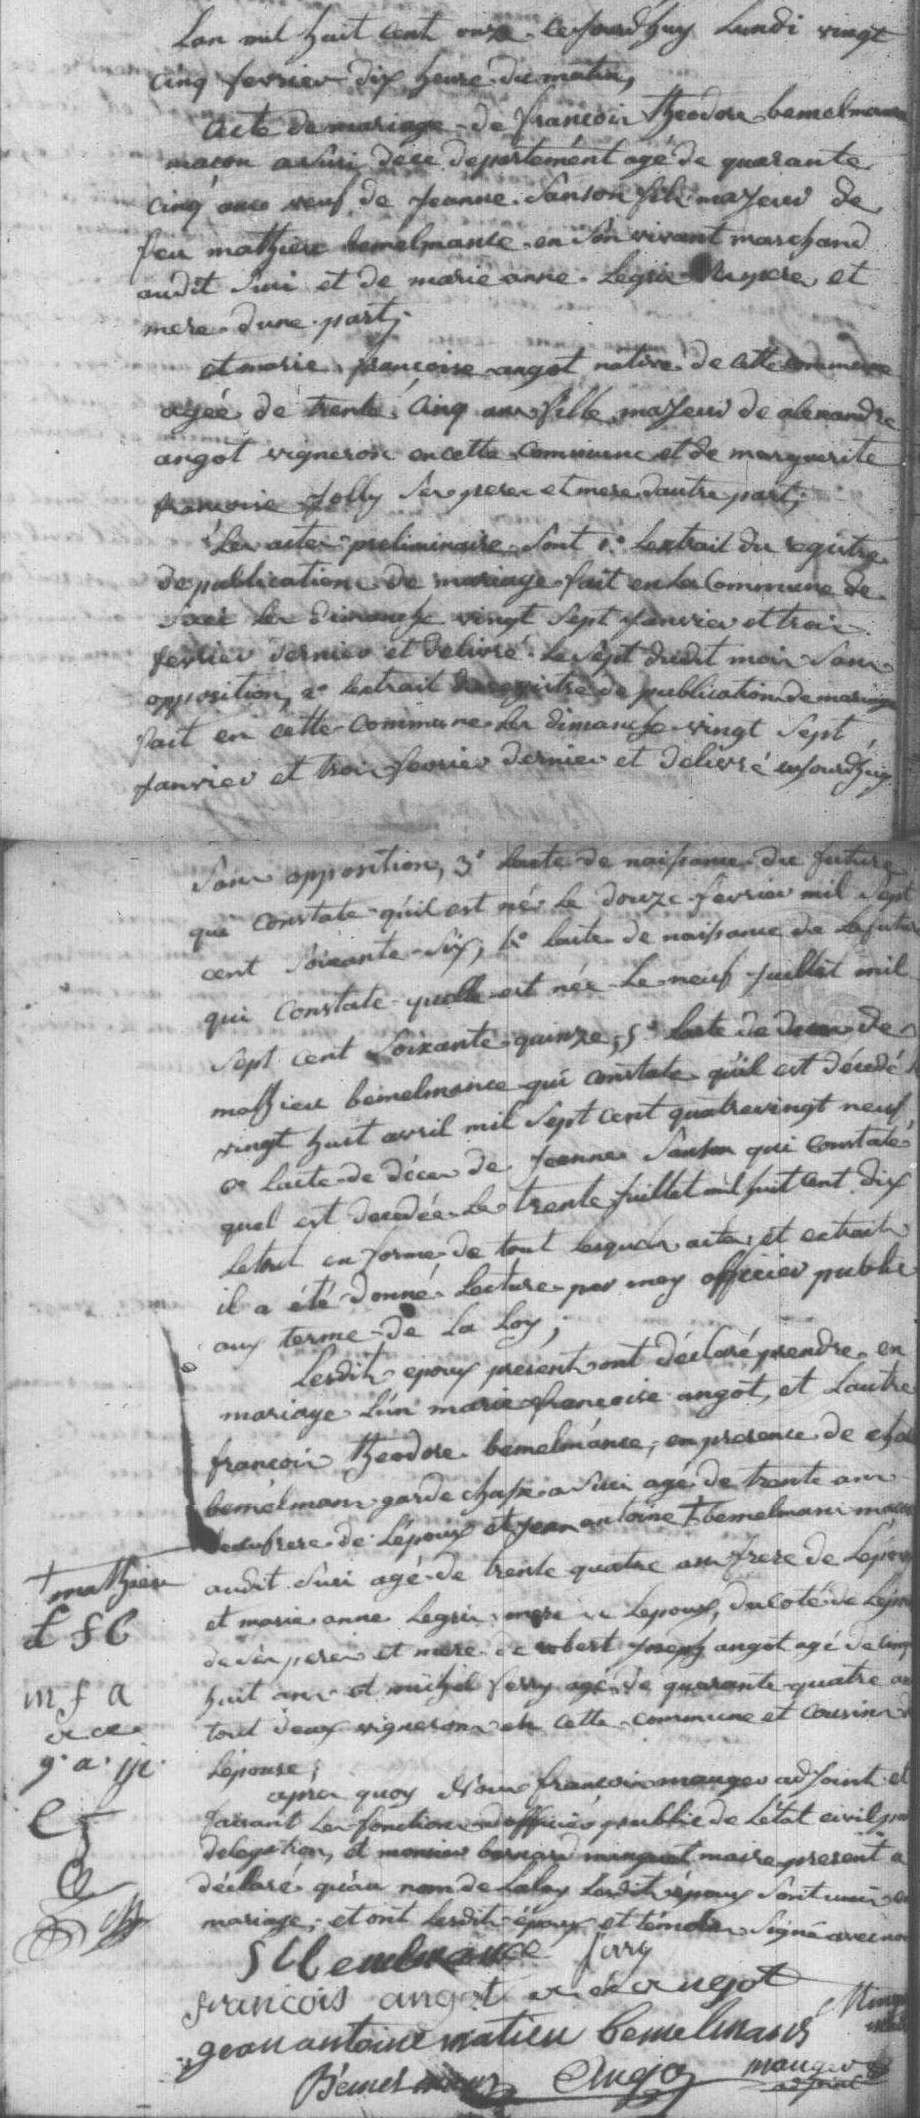 Lan mil huit cent onze cejourdhuy Lundi vingt
cinq fevrier dix heure du matin,
acte de mariage de francois theodore bemelmans
macon a Suri dece departement agé de quarante
cinq ans veuf de jeanne Sanson fils majeur de
feu mathieu bemelmance en Son vivant marchand
audit Suri et de marie anne Legris Ses pere et
mere dune part;
et marie francoise angot native de cette commune
agée de trente cinq ans fille majeur de alexandre
angot vigneron en cette commune et de marguerite
francoise Jolly Ses pere et mere dautre part;
Les actes preliminaire Sont 1.° Lextrait du registre
de publication de mariage fait en la Commune de
Suri les dimanche vingt Sept janvier et trois
fevrier dernier et delivré le Sept dudit mois Sans
opposition, 2° lextrait du registre de publication de mariage
fait en cette commune les dimanche vingt Sept
janvier et trois fevrier dernier et delivré cejourdhuy
Sans opposition, 3° lacte de naissance du future
qui constate quil est née Le douze fevrier mil Sept
cent Soixante Six, 4° lacte de naissance de la future
qui constate quelle est née Le neuf juillet mil
Sept cent Soixante quinze, 5° lacte de deces de
mathieu bemelmance qui constate quil est décedé
vingt huit avril mil Sept cent quatrevingt neuf
6° lacte de déces de jeanne Sanson qui constate
quel est decedée Le trente juillet mil huit cent dix
Le tout en forme de tout lesquels actes et extraits
il a été donné Lecture par moy officier public
aux terme de La Loy;
Lesdits epoux present ont déclaré prendre en
mariage L'un marie francoise angot, et Lautre
francois theodore bemelmance, en presence de
bemelmans garde chasse a Suri agé de trente ans
beaufrere de Lépoux et jean antoine + bemelmans macon
audit Suri agé de trente quatre ans frere de Lepoux
et marie anne Legris mere de Lepoux, du coté de Lepouse
de Ses pere et mere de robert joseph angot agé de cinq
huit ans et michel ferry agé de quarante quatre ans
tout deux vignerons en cette commune et cousin
Lépouse;
apres quoy Nous francois mauger adjoint et
faisant les fonction dofficier publie de Létat civil par
delegation, et monsieur bernard minguet maire present a
déclaré qu'au nom de La Loy Lesdits époux Sont unis en
mariage; et ont Lesdits époux et témoins Signé avec nous
+ mathieu
m f a
Bemelmance ferry
francois angot angot
jean antoine matieu bemelmans
Bemelmans Angot mauger
adjoint